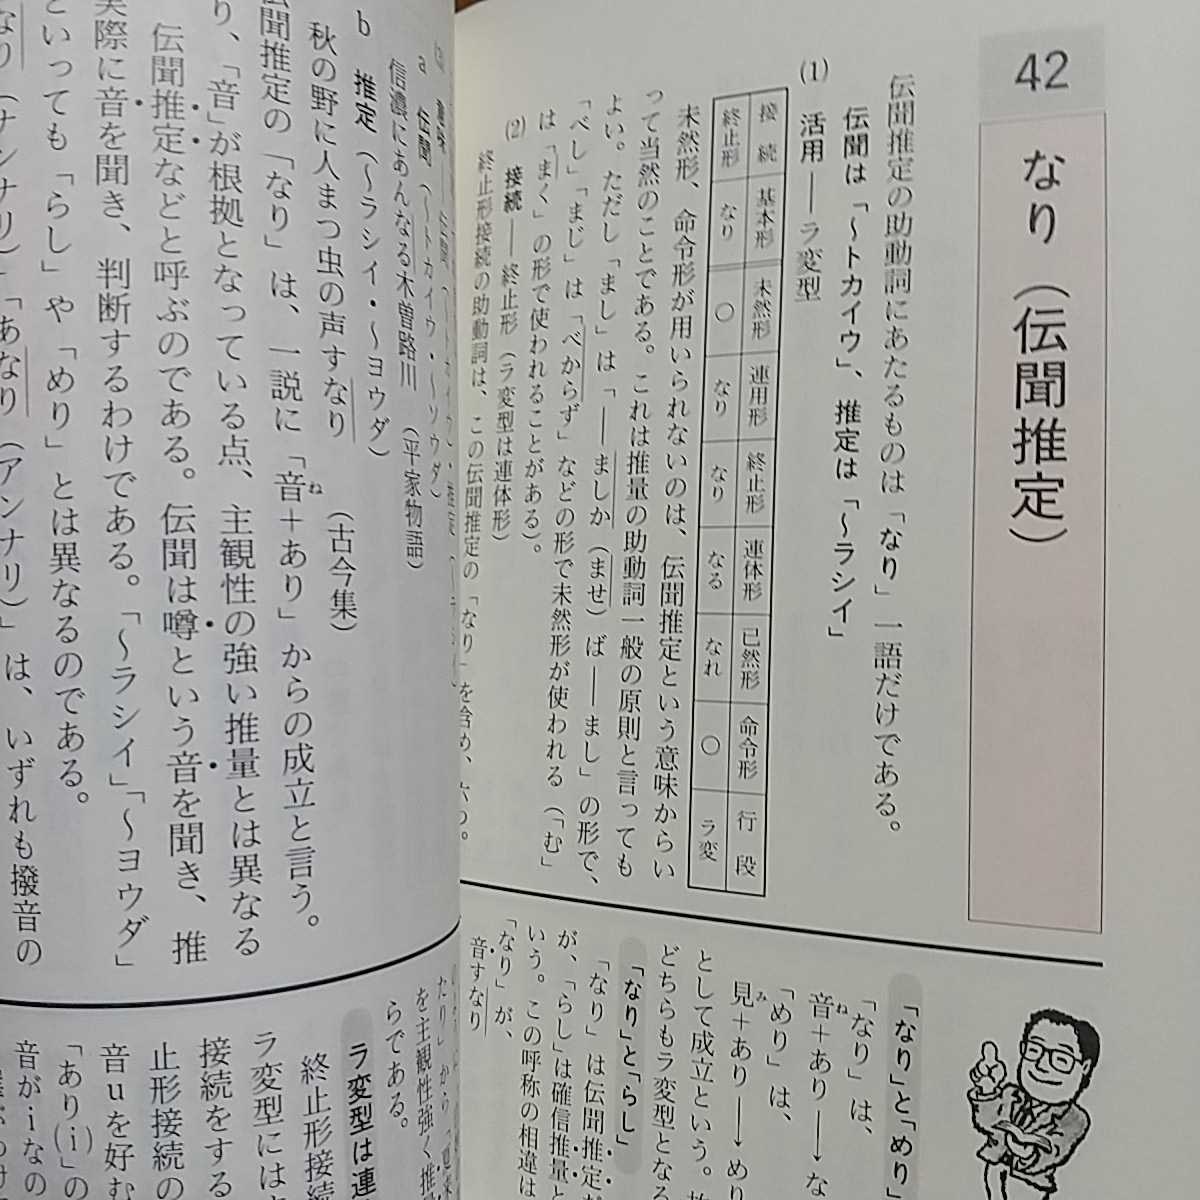 42
なり（伝聞推定）
伝聞推定の助動詞にあたるものは「なり」一語だけである。
伝聞は「〜トカイウ」、推定は「〜ラシイ」
(1) 活用――ラ変型
接続 基本形 未然形 連用形 終止形 連体形 已然形 命令形 行段
終止形 なり ○ なり なり なる なれ ○ ラ変
未然形、命令形が用いられないのは、伝聞推定という意味からい
って当然のことである。これは推量の助動詞一般の原則と言っても
よい。ただし「まし」は「――ましか（ませ）ば――まし」の形で、
「べし」「まじ」は「べからず」などの形で未然形が使われる（「む」
は「まく」の形で使われることがある）。
(2) 接続――終止形（ラ変型は連体形）
終止形接続の助動詞は、この伝聞推定の「なり」を含め、六つ。
「なり」と「めり」
「なり」は、
音＋あり→な
「めり」は、
見＋あり→めり
として成立という。
どちらもラ変型となる
「なり」と「らし」
「なり」は伝聞推定だ
が、「らし」は確信推量と
いう。この呼称の相違は
「なり」が、
音すなり
a 伝聞（〜トカイウ・〜ソウダ）
信濃にあんなる木曽路川（平家物語）
b 推定（〜ラシイ・〜ヨウダ）
秋の野に人まつ虫の声すなり（古今集）
伝聞推定の「なり」は、一説に「音＋あり」からの成立と言う。
り、「音」が根拠となっている点、主観性の強い推量とは異なる
伝聞推定などと呼ぶのである。伝聞は噂という音を聞き、推
実際に音を聞き、判断するわけである。「〜ラシイ」「〜ヨウダ」
といっても「らし」や「めり」とは異なるのである。
なり（ナンナリ）」「あなり（アンナリ）」は、いずれも撥音の
たり」から
を主観性強く推
らである。
ラ変型は連
終止形接続
ラ変型には
接続をする
止形接続の
音uを好む
「あり(i)」の
音がiなの